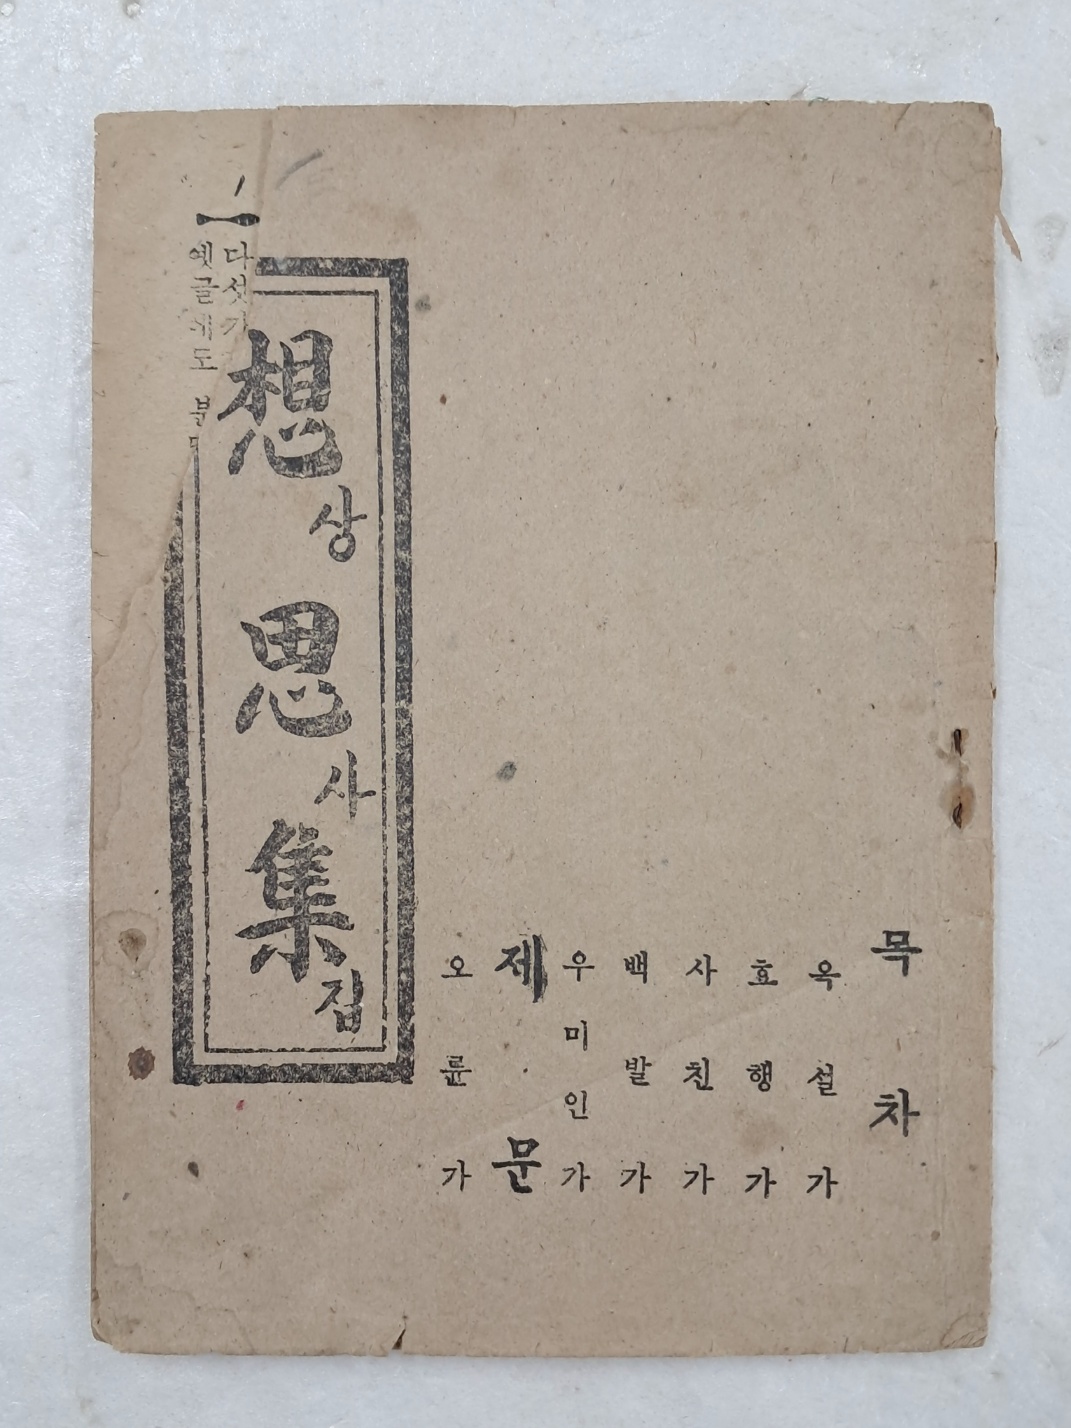 목차
옥설가
효행가
사친가
백발가
우미인가
제문
오륜가
想상思사集집
다섯가
옛글에도 분